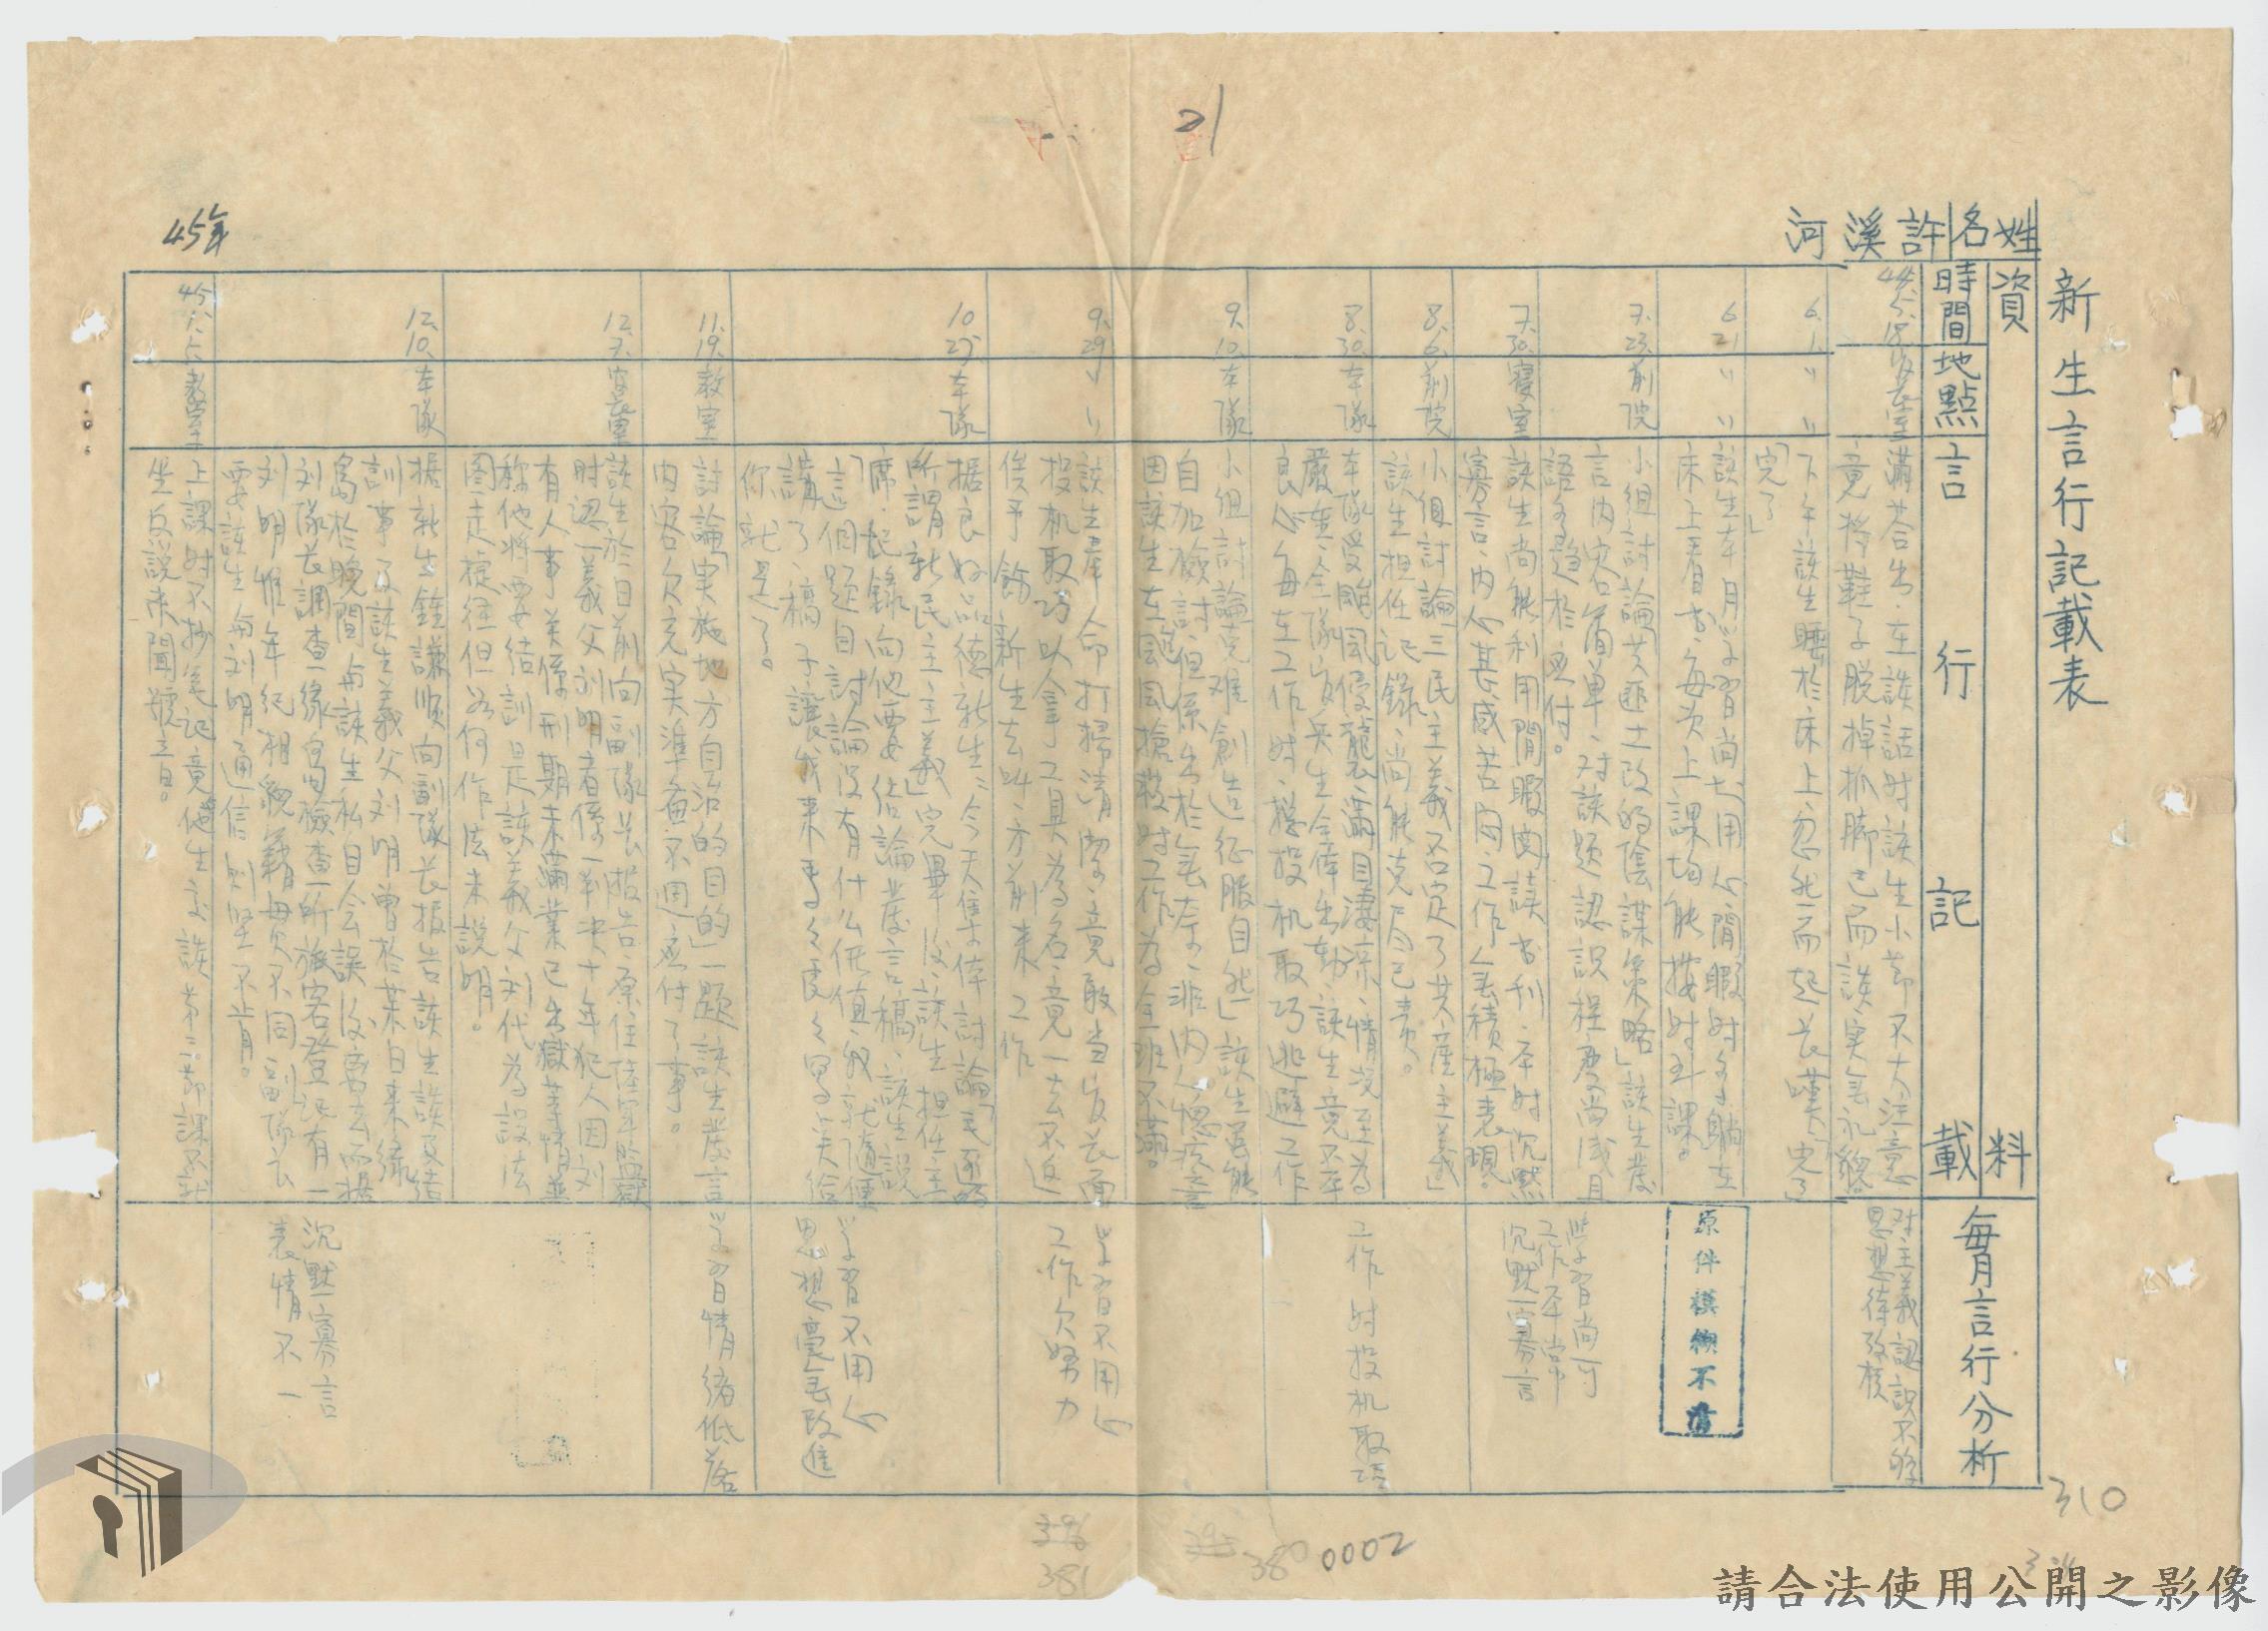 新生言行記載表
姓名
許溪河
資料
時間
地點
言行記載
每月言行分析
44.5.18
滿苔合出、在談話时該生小節不大注意
竟將鞋子脫掉抓脚已而談、实無礼貌。
对主義認識不够
思想待攷核
6.1.
〃〃
下午該生睡於床上忽然而起長嘆「完了」
「完了」
6.21
〃〃
該生本月学習尚
用心閒暇时多躺在
床上看书、每次上課均能按时到課。
7.23.
前院
小組討論「共匪土改的陰謀策略」該生發
言內容簡單、对該題認識程度尚淺且
語多趋於应付。
7.30.
寢室
該生尚能利用閒暇閱讀书刊、平时沉默
寡言、內心甚感苦悶工作無積極表現。
學習尚可
工作平常
沉默寡言
8.6.
前院
小組討論三民主義否定了共產主義」
該生担任记錄、尚能克尽己責。
8.30.
本隊
本隊受颱風侵襲滿目淒涼、情況至為
嚴重、全隊官兵生全体出動、該生竟不本
良心每在工作时、接投机取巧逃避工作
工作时投机取巧
9.10.
本隊
小組討論「克难創造征服自然」該生虽能
自加檢討、但係出於無奈、非內心德疚之言
因該生在颱風搶救时工作為全班不滿。
9.29
〃〃
該生奉命打掃清潔、竟敢当官长面
投机取巧以拿工具為名、竟一去不返
俟予飭新生去叫、方前来工作
学習不用心
工作欠努力
10.27
本隊
据良好品德新生：今天集体討論「民族的
所謂新民主主義」完畢後、該生担任主
席、紀錄向他要結論發言稿、該生說
這個題目討論没有什么价值、我就隨便
講了、稿子讓我来馬々虎々写一点给
你就是了。
学習不用心
思想毫無改進
11.19.
教室
討論「実施地方自治的目的」一題該生發言
內容欠充实準備不週应付了事。
学習情緒低落
12.7.
該生於日前向副隊长报告、原住陸軍監獄
时認一義父刘明者係一判决十年犯人因刘
有人事关係刑期未滿業已出獄等情並
称他將要结訓是該義父刘代為設法
图走捷徑但如何作法未説明。
12.10.
本隊
据新生鍾謙順向副隊长报告該生談及结
訓事及該生義父刘明曾於某日来綠
島於晚間与該生私自会談後离去而据
刘隊长調查綠島檢查所旅客登记有一
刘明惟年纪相貌籍貫不同、副隊长
要該生与刘明通信則堅不肯。
沉默寡言
表情不一
45.1.5.
教室
上課时不抄筆记竟与他生交談第二節課又就
坐反說未聞號音。
45年
21
原件模糊不清
310
396
381
395
380
0002
請合法使用公開之影像